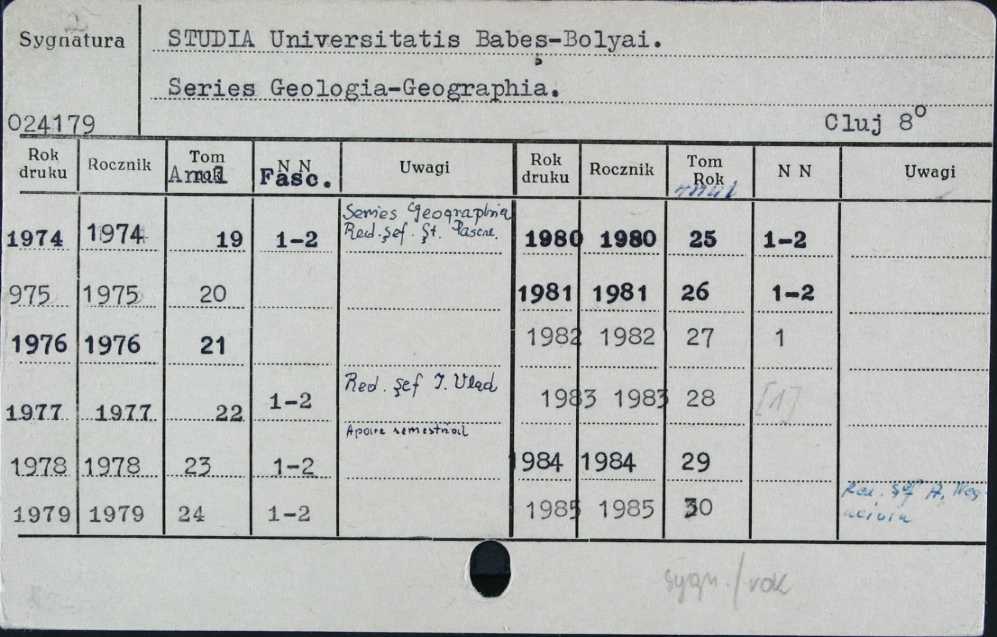 Sygnatura
STUDIA Universitatis Babeş-Bolyai.
Series Geologia-Geographia.
024179
Cluj 8°
Rok druku Rocznik Tom Rok Anul N N Fasc. Uwagi Rok druku Rocznik Tom Rok anul N N Uwagi
1974 1974 19 1-2 Series Geographia Red. şef. Şt. 1980 1980 25 1-2
975 1975 20 1981 1981 26 1-2
1976 1976 21 1982 1982 27 1
1977 1977 22 1-2 Red. şef I. Vlad 1983 1983 28 [1]
Apare
1978 1978 23 1-2 1984 1984 29
1979 1979 24 1-2 1985 1985 30 Red. şef
sygn./rok